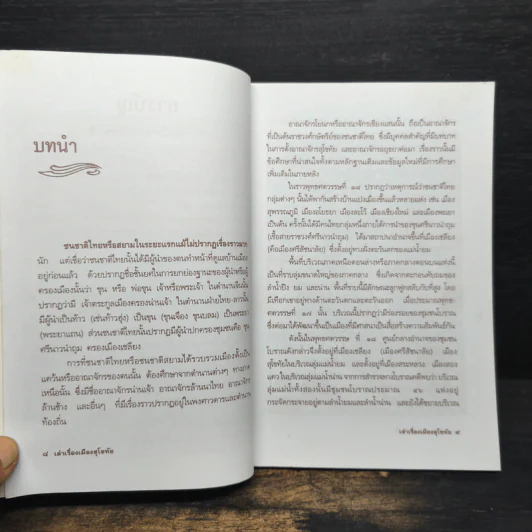 บทนำ
ชนชาติไทยหรือสยามในระยะแรกแม้ไม่ปรากฏเรื่องราวมาก
นัก แต่เชื่อว่าชนชาติไทยนั้นได้มีผู้นำของตนทำหน้าที่ดูแลบ้านเมือง
อยู่ก่อนแล้ว ด้วยปรากฏชื่อชั้นยศในการยกย่องฐานะของผู้นำหรือผู้
ครองเมืองนั้นว่า ขุน หรือ พ่อขุน เจ้าหรือพระเจ้า ในตำนานจีนนั้น
ปรากฏว่ามี เจ้าตระกูลเมืองครองน่านเจ้า ในตำนานฝ่ายไทย-ลาวนั้น
มีผู้นำเป็นท้าว (เช่นท้าวฮุ่ง) เป็นขุน (ขุนเจือง ขุนบลม) เป็นพระยา
(พระยาแถน) ส่วนชนชาติไทยนั้นปรากฏมีผู้นำปกครองชุมชนคือ ขุน
ศรีนาวนำถุม ครองเมืองเชลียง
การที่ชนชาติไทยหรือชนชาติสยามได้รวบรวมเมืองตั้งเป็น
แคว้นหรืออาณาจักรของตนนั้น ต้องศึกษาจากตำนานต่างๆ ทางภาค
เหนือนั้น ซึ่งมีชื่ออาณาจักรน่านเจ้า อาณาจักรล้านนาไทย อาณาจักร
ล้านช้าง และอื่นๆ ที่มีเรื่องราวปรากฏอยู่ในพงศาวดารและตำนาน
ท้องถิ่น
๘ เล่าเรื่องเมืองสุโขทัย
อาณาจักรโยนกหรืออาณาจักรเชียงแสนนั้น ถือเป็นอาณาจักร
ที่เป็นต้นราชวงศ์กษัตริย์ของชนชาติไทย ซึ่งมีบุคคลสำคัญที่มีบทบาท
ในการตั้งอาณาจักรสุโขทัย และอาณาจักรอยุธยาต่อมา เรื่องราวนั้นมี
ข้อศึกษาที่น่าสนใจทั้งตามหลักฐานเดิมและข้อมูลใหม่ที่มีการศึกษา
เพิ่มเติมในภายหลัง
ในราวพุทธศตวรรษที่ ๑๘ ปรากฏว่าเหตุการณ์ว่าชนชาติไทย
กลุ่มต่างๆ นั้นได้พากันสร้างบ้านแปงเมืองขึ้นแล้วหลายแห่ง เช่น เมือง
สุพรรณภูมิ เมืองอโยธยา เมืองละโว้ เมืองเชียงใหม่ และเมืองพะเยา
เป็นต้น ครั้งนั้นได้มีคนไทยกลุ่มหนึ่งภายใต้การนำของขุนศรีนาวนำถุม
(เชื้อสายราชวงศ์ศรีนาวนำถุม) ได้มาสถาปนาอำนาจขึ้นที่เมืองเชลียง
(คือเมืองศรีสัชนาลัย) ซึ่งตั้งอยู่ทางฝั่งตะวันตกของแม่น้ำยม
พื้นที่บริเวณภาคเหนือตอนล่างหรือภาคกลางตอนบนแห่งนี้
เป็นที่ราบลุ่มขนาดใหญ่ของภาคกลาง ซึ่งเกิดจากตะกอนทับถมของ
ลำน้ำปิง ยม และน่าน พื้นที่ราบนี้มีลักษณะลูกฟูกสลับกับที่สูง โดย
มีเทือกเขาอยู่ทางด้านตะวันตกและตะวันออก เมื่อประมาณพุทธ-
ศตวรรษที่ ๗ นั้น บริเวณนี้ปรากฏว่ามีร่องรอยของชุมชนโบราณ
ซึ่งต่อมาได้พัฒนาขึ้นเป็นเมืองที่มีศาสนาเป็นสื่อสร้างความสัมพันธ์กัน
ดังนั้นในพุทธศตวรรษที่ ๑๘ ศูนย์กลางอำนาจของชุมชน
โบราณดังกล่าวจึงตั้งอยู่ที่เมืองเชลียง (เมืองศรีสัชนาลัย) เมือง
สุโขทัยในบริเวณลุ่มแม่น้ำยม และตั้งอยู่ที่เมืองสระหลวง เมืองสอง
แคว ในบริเวณลุ่มแม่น้ำน่าน จากการสำรวจทางโบราณคดีพบว่า บริเวณ
ลุ่มแม่น้ำทั้งสองนั้นมีชุมชนโบราณประมาณ ๔๖ แห่งอยู่
กระจัดกระจายอยู่ตามลำน้ำยมและลำน้ำน่าน และยังได้ขยายบริเวณ
เล่าเรื่องเมืองสุโขทัย ๙